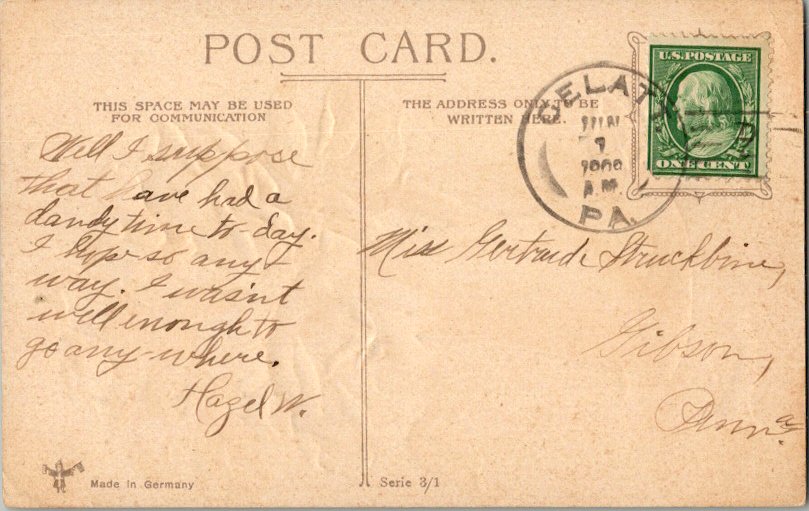 POST CARD.
THIS SPACE MAY BE USED
FOR COMMUNICATION
THE ADDRESS ONLY TO BE
WRITTEN HERE.
U.S. POSTAGE
ONE CENT
GELATT
JUN
7
A.M.
PA.
Well I suppose
that have had a
dandy time to-day.
I hope so any-
way. I wasn't
well enough to
go any-where.
Hazel W.
Miss Gertrude Struckbine,
Gibson,
Penna.
Made in Germany
Serie 3/1